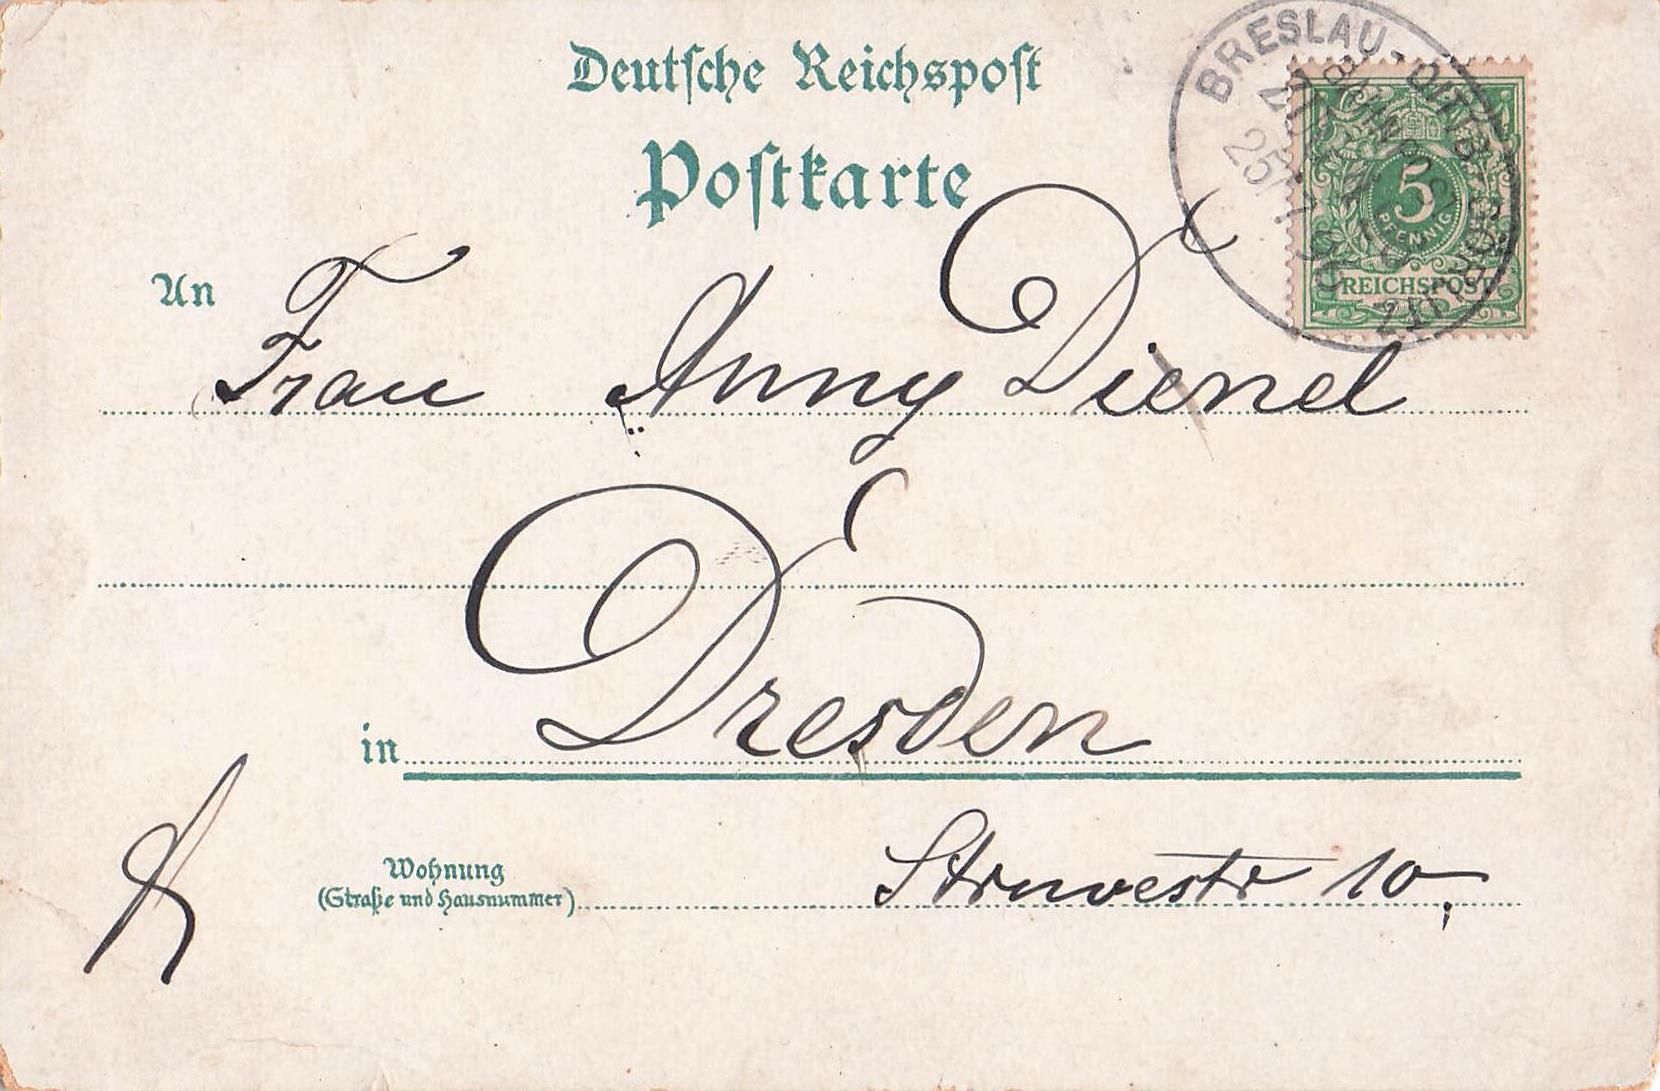 Deutsche Reichspost
Postkarte
BRESLAU-
5
PFENNIG
REICHSPOST
An
Frau Anny Dienel
in Dresden
Wohnung
(Straße und Hausnummer)
Struvestr 10